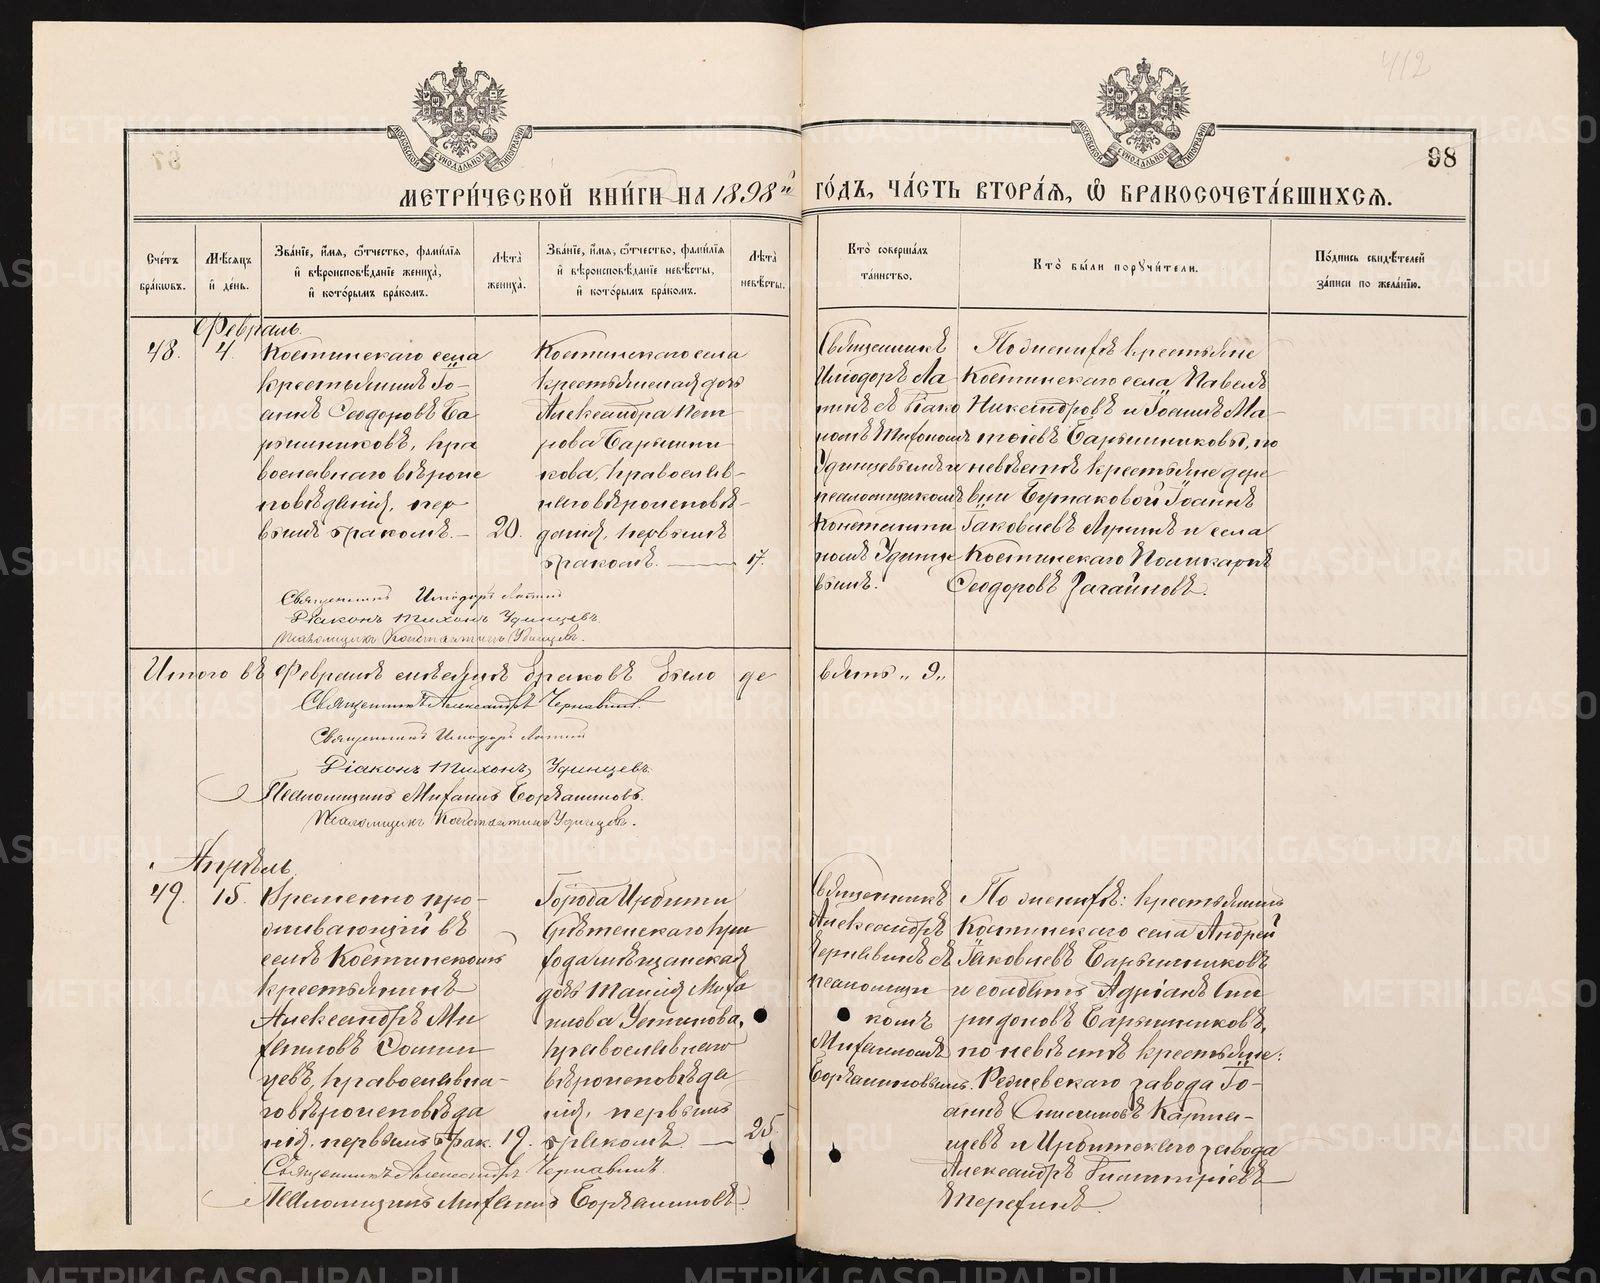 412
98
МЕТРИ́ЧЕСКОЙ КНИ́ГИ НА 1898й ГО́ДЪ, ЧА́СТЬ ВТОРА́Я, Ѽ БРАКОСОЧЕТА́ВШИХСЯ.
Сче́тъ бра́кѡвъ.
Мѣ́сяцъ и҆ де́нь.
Зва́нїе, и҆́мя, ѻ҆́тчество, фамилїя и҆ вѣроисповѣ́данїе жениха̀, и҆ кото́рымъ бра́комъ.
Лѣта̀ жениха̀.
Зва́нїе, и҆́мя, ѻ҆́тчество, фамилїя и҆ вѣроисповѣ́данїе невѣ́сты, и҆ кото́рымъ бра́комъ.
Лѣта̀ невѣ́сты.
Кто̀ соверша́лъ та́инство.
Кто̀ бы́ли поручи́тели.
По́дпись свидѣ́телей за́писи по жела́нїю.
Февраль
48.
4.
Костинскаго села
крестьянинъ Іо-
аннъ Ѳеодоровъ Ба
рышниковъ, пра
вославнаго вѣроис
повѣданія, пер
вымъ бракомъ.
20.
Костинскаго села
крестьянская дочь
Александра Пет
рова Барышни
кова, православ-
наго вѣроисповѣ-
данія, первымъ
бракомъ.
17.
Священникъ
Исидоръ Ла
тинъ съ діако
номъ Тихономъ
Удинцевымъ и
псаломщикомъ
Константи
номъ Удинце
вымъ.
По женихѣ крестьяне
Костинскаго села Павелъ
Никандровъ и Іоаннъ Ма-
тоіевъ Барышниковы, по
невѣстѣ крестьяне дере
вни Бунаковой Іоаннъ
Іаковлевъ Лунинъ и села
Костинскаго Поликарпъ
Ѳеодоровъ Загайновъ.
Священникъ Исидоръ Латинъ
Діаконъ Тихонъ Удинцевъ.
Псаломщикъ Константинъ Удинцевъ.
Итого въ Февралѣ мѣсяцѣ браковъ было девять „9„
Священникъ Александръ Чернавинъ.
Священникъ Исидоръ Латинъ
Діаконъ Тихонъ Удинцевъ.
Псаломщикъ Михаилъ Боряминовъ.
Псаломщикъ Константинъ Удинцевъ.
Апрѣль.
49.
15.
Временно про-
живающій въ
селѣ Костинскомъ
крестьянинъ
Александръ Ми
хаиловъ
цевъ, православна-
го вѣроисповѣда
нія, первымъ брак.
19.
Города Ирбити
Срѣтенскаго при
хода мѣщанская
дочь Таисія Миха
илова Устинова,
православнаго
вѣроисповѣда
нія, первымъ
бракомъ
25.
Священникъ
Александръ
Чернавинъ съ
псаломщи
комъ
Михаиломъ
Боряминовымъ.
По женихѣ: крестьянинъ
Костинскаго села Андрей
Іаковлевъ Барышниковъ
и солдатъ Адріанъ Спи
ридоновъ Барышниковъ,
по невѣстѣ крестьяне:
Режевскаго завода Іо-
аннъ Карта-
шевъ и Ирбитскаго завода
Александръ Димитріевъ
Терехинъ.
Священникъ Александръ Чернавинъ.
Псаломщикъ Михаилъ Боряминовъ.